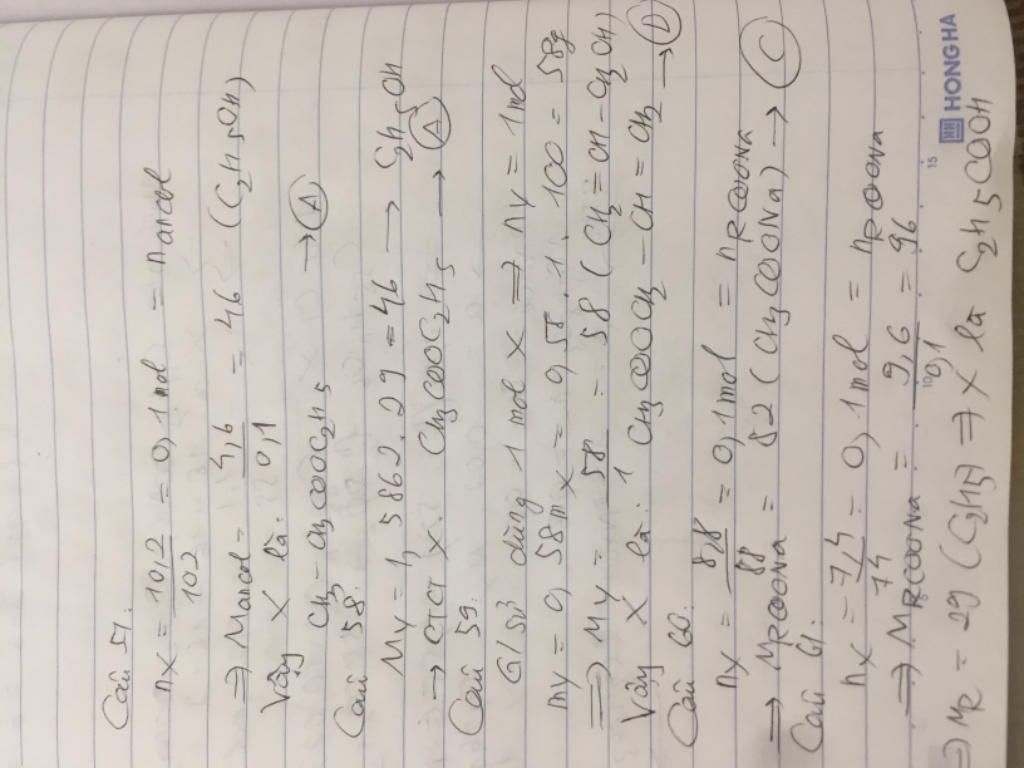 Câu 57:
nX = 10,2/102 = 0,1 mol = nancol
⇒ Mancol = 4,6/0,1 = 46 (C2H5OH)
Vậy X là:
CH3-CH3COOC2H5 → (A)
Câu 58:
MY = 1,5862.29 = 46 → C2H5OH
→ CTCT X: CH3COOC2H5 → (A)
Câu 59:
Giả sử dùng 1 mol X ⇒ nY = 1 mol
mY = 0,58mX = 0,58.1.100 = 58g
⇒ MY = 58/1 = 58 (CH2=CH-CH2OH)
Vậy X là: CH3COOCH2-CH=CH2 → (D)
Câu 60:
nX = 8,8/88 = 0,1 mol = nRCOONa
⇒ MRCOONa = 82 (CH3COONa) → (C)
Câu 61:
nX = 7,4/74 = 0,1 mol = nRCOONa
⇒ MRCOONa = 9,6/0,1 = 96
⇒ MR = 29 (C2H5) ⇒ X là C2H5COOH
HONG HA
10
15